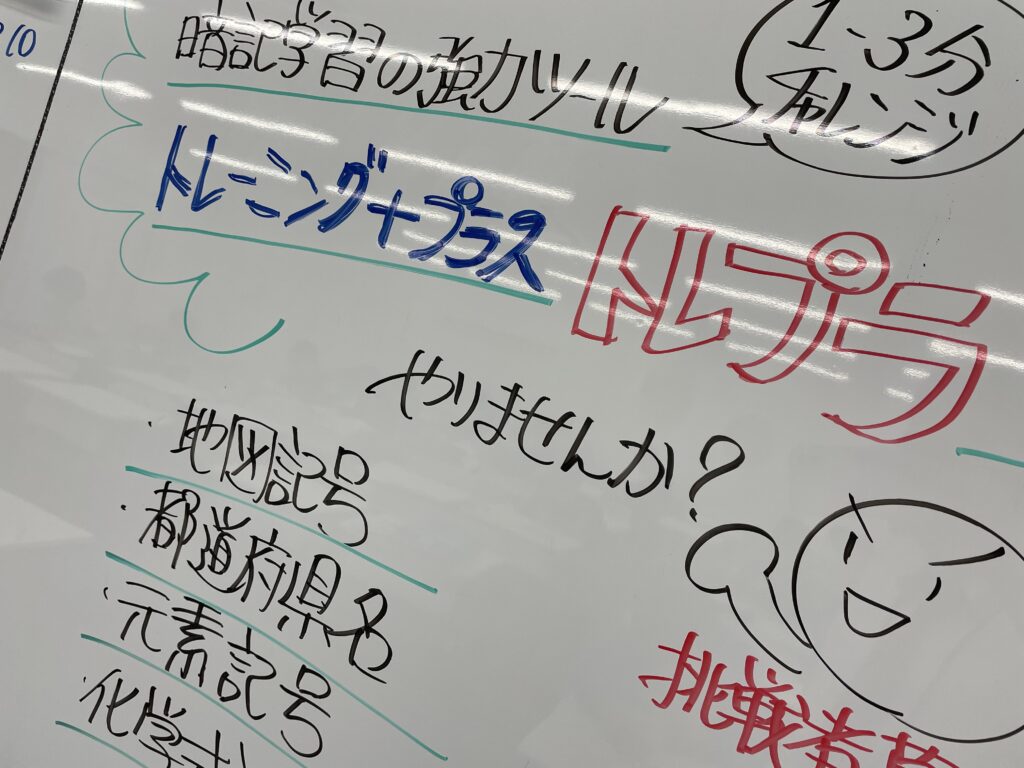 暗記学習の強力ツール
1-3分
チャレンジ
トレーニング+プラス
トレプラ
やりませんか?
・地図記号
・都道府県名
・元素記号
・化学式
挑戦者募